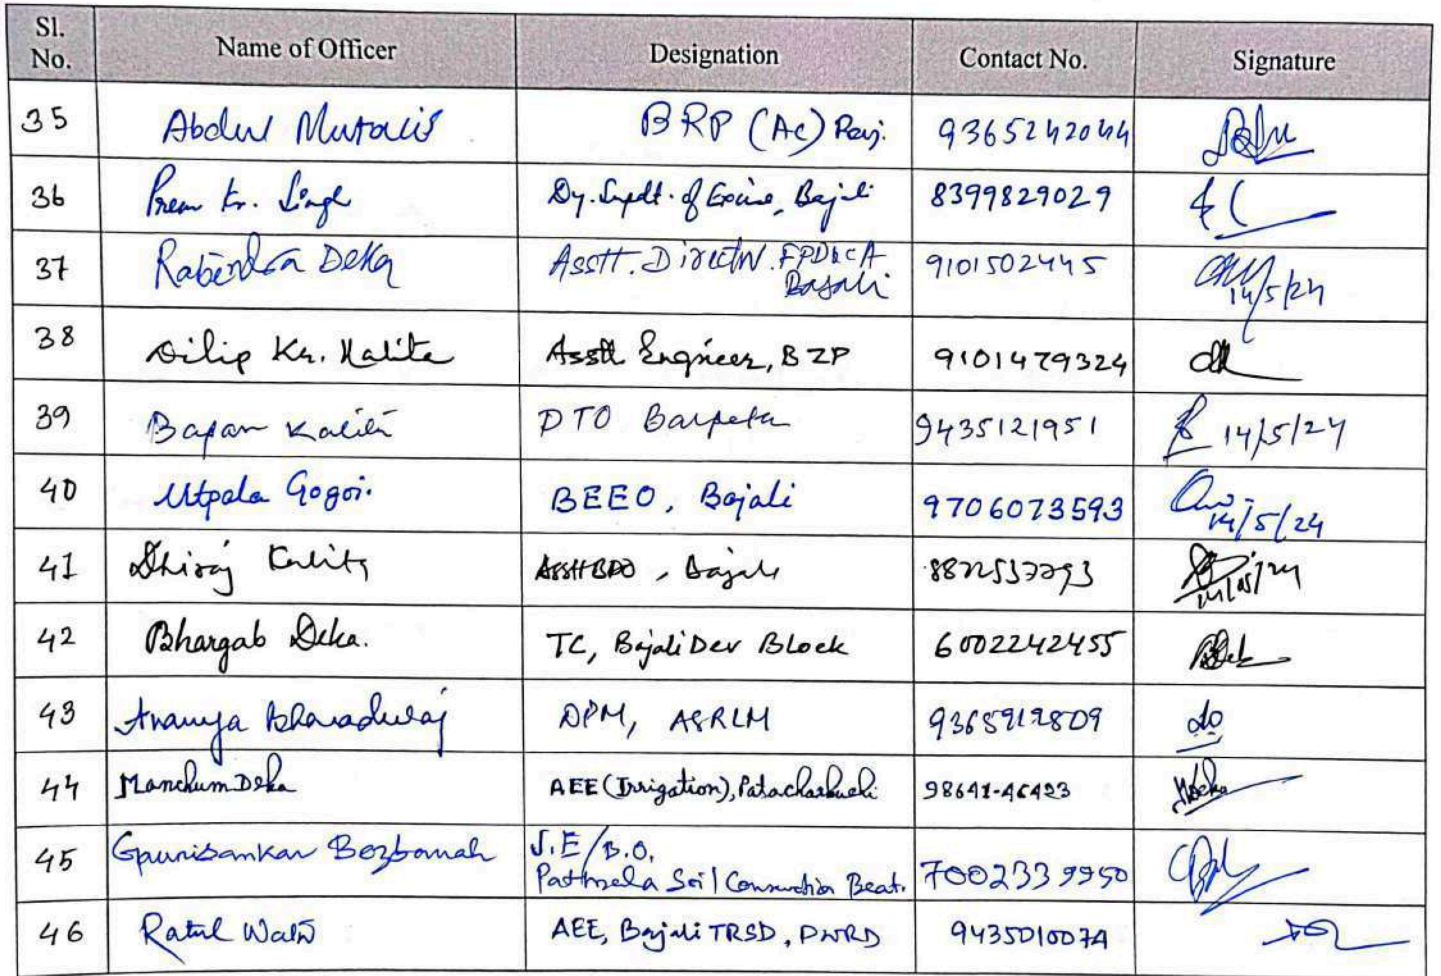 Sl. No. Name of Officer Designation Contact No. Signature
35 Abdul Mutalib BRP (AC) Paij. 9365242044
36 Prem Kr. Singh Dy. Supdt. of Excise, Bajali 8399829029
37 Rabindra Deka Asstt. Director. FPD&CA Bajali 9101502445 14/5/24
38 Dilip Kr. Kalita Asstt Engineer, BZP 9101479324
39 Bapan Kalita DTO Barpeta 9435121951 14/5/24
40 Utpala Gogoi. BEEO, Bajali 9706073593 14/5/24
41 Dhiraj Kalita Asstt BDO, Bajali 14/05/24
42 Bhargab Deka. TC, Bajali Dev Block 6002242455
43 Ananya Bharadwaj DPM, ASRLM 9365912809
44 Manchum Deka AEE (Irrigation), Patacharkuchi 98641-46423 MDeka
45 Gaurisankar Bozbaruah J.E/B.O.
Pathsala Soil Conservation Beat. 7002339950
46 Ratul AEE, Bajali TRSD, PWRD 9435010074